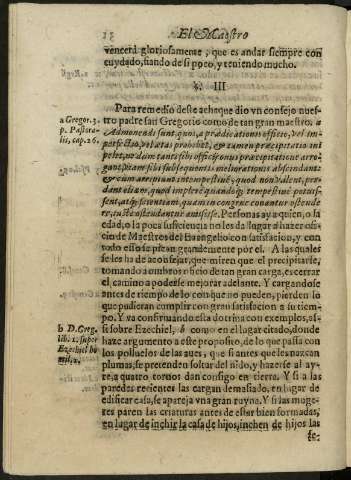 El Maestro
vencerà gloriosamente, que es andar siempre con
cuydado, fiando de si poco, y teniendo mucho.
§. III
Para remedio deste achaque dio vn consejo nues-
a Gregor. 3.
tro padre san Gregorio como de tan gran maestro. a
p. Pastora-
Admonendi sunt, qui, a prædicationis officio, vel im
lis, cap. 26.
perfectio, vel ætas prohibet, & tamen præcipitatio im
pelit, ne dum tanti sibi officij onus præcipitatione arro
gant, viam sibi subsequentis meliorationis abscindant:
& cum arripiunt intempestiuè, quod non valent, per-
dant etiam, quod implere quandoq; tempestiuè potuis-
sent, atq; scientiam, quam incongruè conantur ostende
re, iuste ostendantur amisisse. Personas ay a quien, o la
edad, o la poca suficiencia no les da lugar a hazer ofi-
cio de Maestros del Euangelio con satisfacion, y con
todo esso suspiran grandemente por el. A las quales
se les ha de aconsejar, que miren que el precipitarse,
tomando a ombros oficio de tan gran carga, es cerrar
el camino a poderse mejorar adelante. Y cargandose
antes de tiempo de lo con que no pueden, pierden lo
que pudieran cumplir con gran satisfacion a su tiem-
po. Y va confirmando esta doctrina con exemplos, as-
b D. Greg.
si sobre Ezechiel, b como en el lugar citado, donde
lib. 1. super
haze argumento a este proposito, de lo que passa con
Ezechiel ho
los polluelos de las aues, que si antes que les nazcan
mil. 2.
plumas, se pretenden soltar del nido, y hazerse al ay-
re, a quatro tornos dan consigo en tierra. Y si a las
paredes rezientes las cargan demasiado, en lugar de
edificar casa, se apareja vna gran ruyna. Y si las muge-
res paren las criaturas antes de estar bien formadas,
en lugar de inchir la casa de hijos, inchen de hijos las
se-